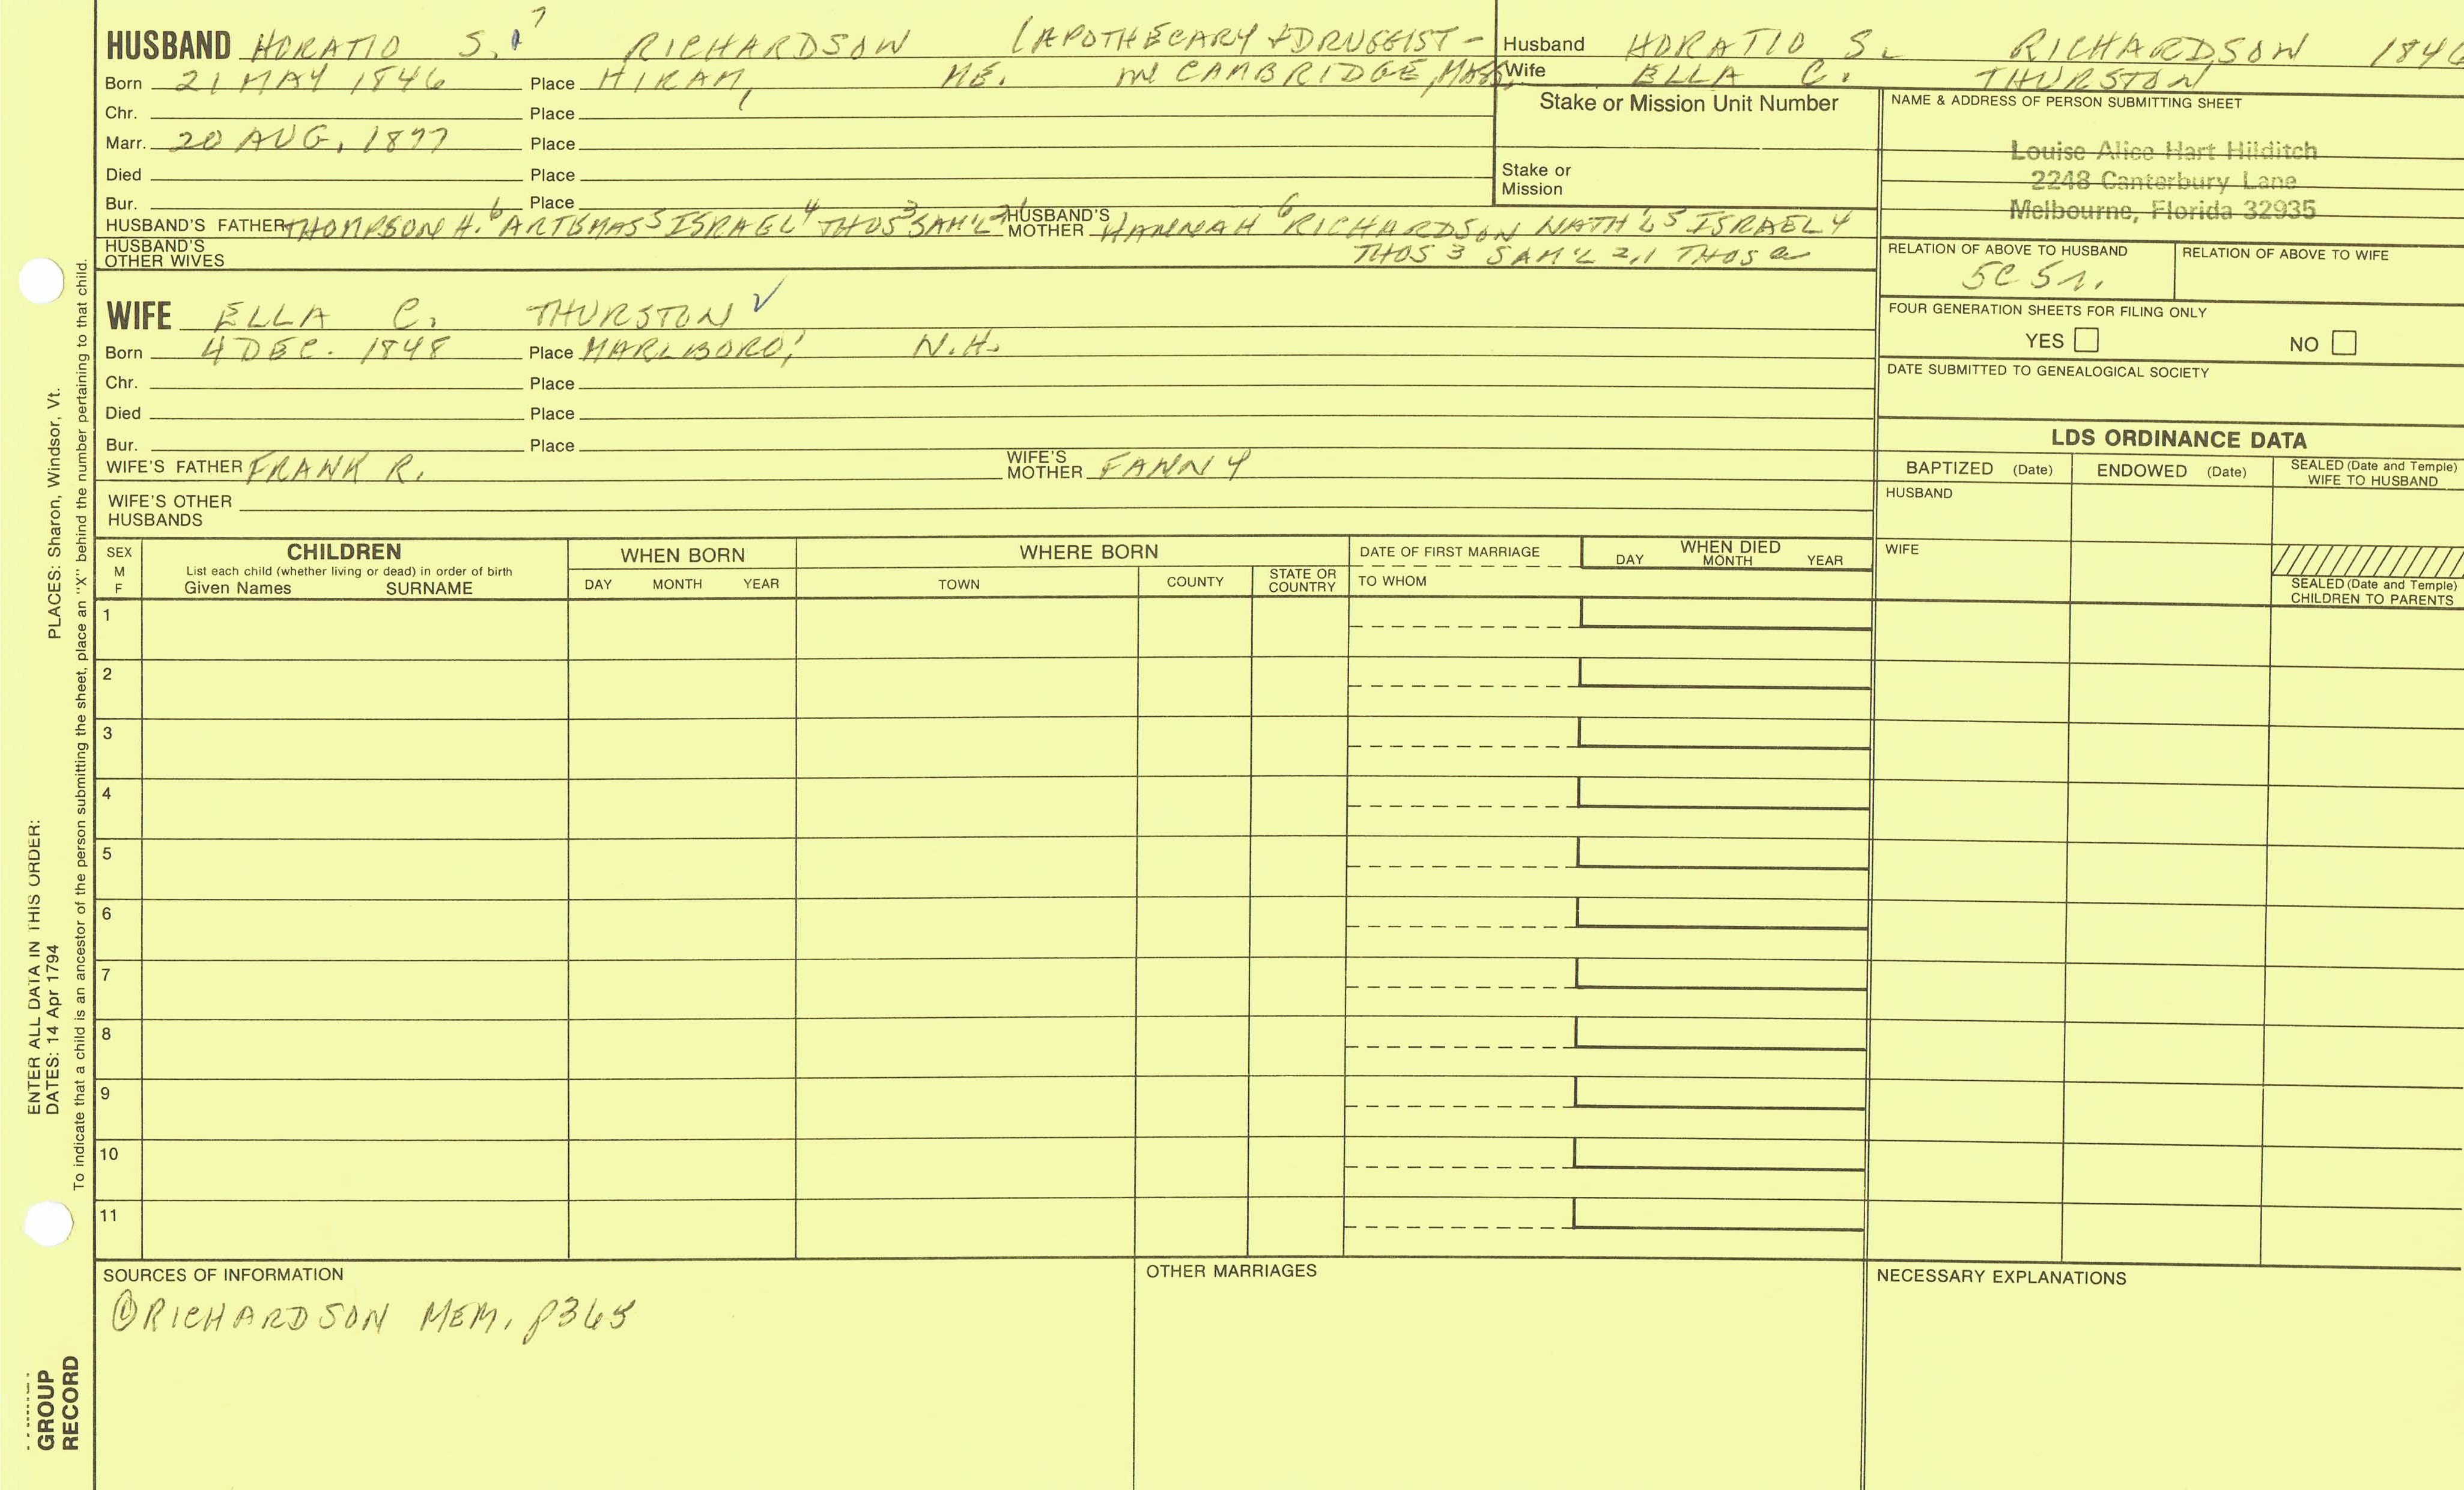 7
HUSBAND HORATIO S. RICHARDSON (APOTHECARY & DRUGGIST -
Born 21 MAY 1846 Place HIRAM, ME. in CAMBRIDGE, MASS.
Chr. Place
Marr. 20 AUG, 1877 Place
Died Place
Bur. Place
HUSBAND'S FATHER THOMPSON H.6 ARTEMAS5 ISRAEL4 THOS3 SAM'L2 HUSBAND'S MOTHER HANNAH6 RICHARDSON NATH'L5 ISRAEL4
THOS3 SAM'L 2,1 THOS
HUSBAND'S OTHER WIVES
WIFE ELLA C. THURSTON ✓
Born 4 DEC. 1848 Place MARLBORO, N.H.
Chr. Place
Died Place
Bur. Place
WIFE'S FATHER FRANK R. WIFE'S MOTHER FANNY
WIFE'S OTHER HUSBANDS
Husband HORATIO S. RICHARDSON 1846
Wife ELLA C. THURSTON
Stake or Mission Unit Number
Stake or
Mission
NAME & ADDRESS OF PERSON SUBMITTING SHEET
Louise Alice Hart Hilditch
2248 Canterbury Lane
Melbourne, Florida 32935
RELATION OF ABOVE TO HUSBAND RELATION OF ABOVE TO WIFE
5C 5r.
FOUR GENERATION SHEETS FOR FILING ONLY
YES NO
DATE SUBMITTED TO GENEALOGICAL SOCIETY
LDS ORDINANCE DATA
BAPTIZED (Date) ENDOWED (Date) SEALED (Date and Temple) WIFE TO HUSBAND
HUSBAND
WIFE
SEALED (Date and Temple)
CHILDREN TO PARENTS
SEX
M
F
CHILDREN
List each child (whether living or dead) in order of birth
Given Names SURNAME
WHEN BORN
DAY MONTH YEAR
WHERE BORN
TOWN COUNTY STATE OR COUNTRY
DATE OF FIRST MARRIAGE
TO WHOM
WHEN DIED
DAY MONTH YEAR
1
2
3
4
5
6
7
8
9
10
11
SOURCES OF INFORMATION
① RICHARDSON MEM. p365
OTHER MARRIAGES
NECESSARY EXPLANATIONS
PLACES: Sharon, Windsor, Vt.
ENTER ALL DATA IN THIS ORDER:
DATES: 14 Apr 1794
To indicate that a child is an ancestor of the person submitting the sheet, place an "X" behind the number pertaining to that child.
GROUP
RECORD